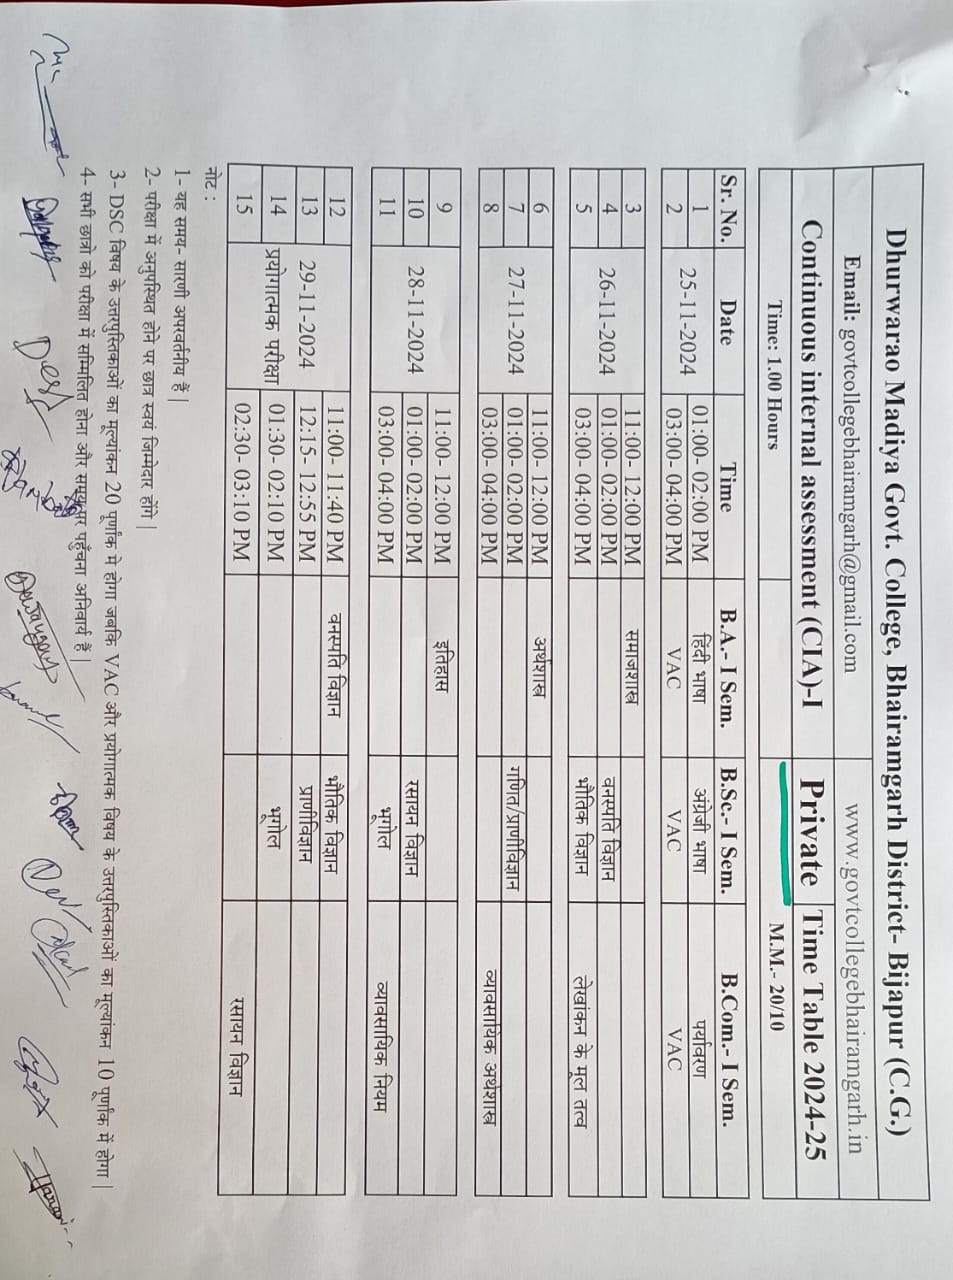 Dhurwarao Madiya Govt. College, Bhairamgarh District- Bijapur (C.G.)
Email: govtcollegebhairamgarh@gmail.com www.govtcollegebhairamgarh.in
Continuous internal assessment (CIA)-I Private Time Table 2024-25
Time: 1.00 Hours M.M.- 20/10
Sr. No. Date Time B.A.- I Sem. B.Sc.- I Sem. B.Com.- I Sem.
1 25-11-2024 01:00- 02:00 PM हिंदी भाषा अंग्रेजी भाषा पर्यावरण
2 03:00- 04:00 PM VAC VAC VAC
3 26-11-2024 11:00- 12:00 PM समाजशास्त्र
4 01:00- 02:00 PM वनस्पति विज्ञान
5 03:00- 04:00 PM भौतिक विज्ञान लेखांकन के मूल तत्व
6 27-11-2024 11:00- 12:00 PM अर्थशास्त्र
7 01:00- 02:00 PM गणित/प्राणीविज्ञान
8 03:00- 04:00 PM व्यावसायिक अर्थशास्त्र
9 28-11-2024 11:00- 12:00 PM इतिहास
10 01:00- 02:00 PM रसायन विज्ञान
11 03:00- 04:00 PM भूगोल व्यावसायिक नियम
12 29-11-2024 11:00- 11:40 PM वनस्पति विज्ञान भौतिक विज्ञान
13 12:15- 12:55 PM प्राणीविज्ञान
14 प्रयोगात्मक परीक्षा 01:30- 02:10 PM भूगोल
15 02:30- 03:10 PM रसायन विज्ञान
नोट :
1- यह समय- सारणी अपरवर्तनीय हैं |
2- परीक्षा में अनुपस्थित होने पर छात्र स्वयं जिम्मेदार होंगे |
3- DSC विषय के उत्तरपुस्तिकाओं का मूल्यांकन 20 पूर्णांक मे होगा जबकि VAC और प्रयोगात्मक विषय के उत्तरपुस्तिकाओं का मूल्यांकन 10 पूर्णांक में होगा |
4- सभी छात्रो को परीक्षा में सम्मिलित होना और समय पर पहुँचना अनिवार्य हैं |
Dewangan